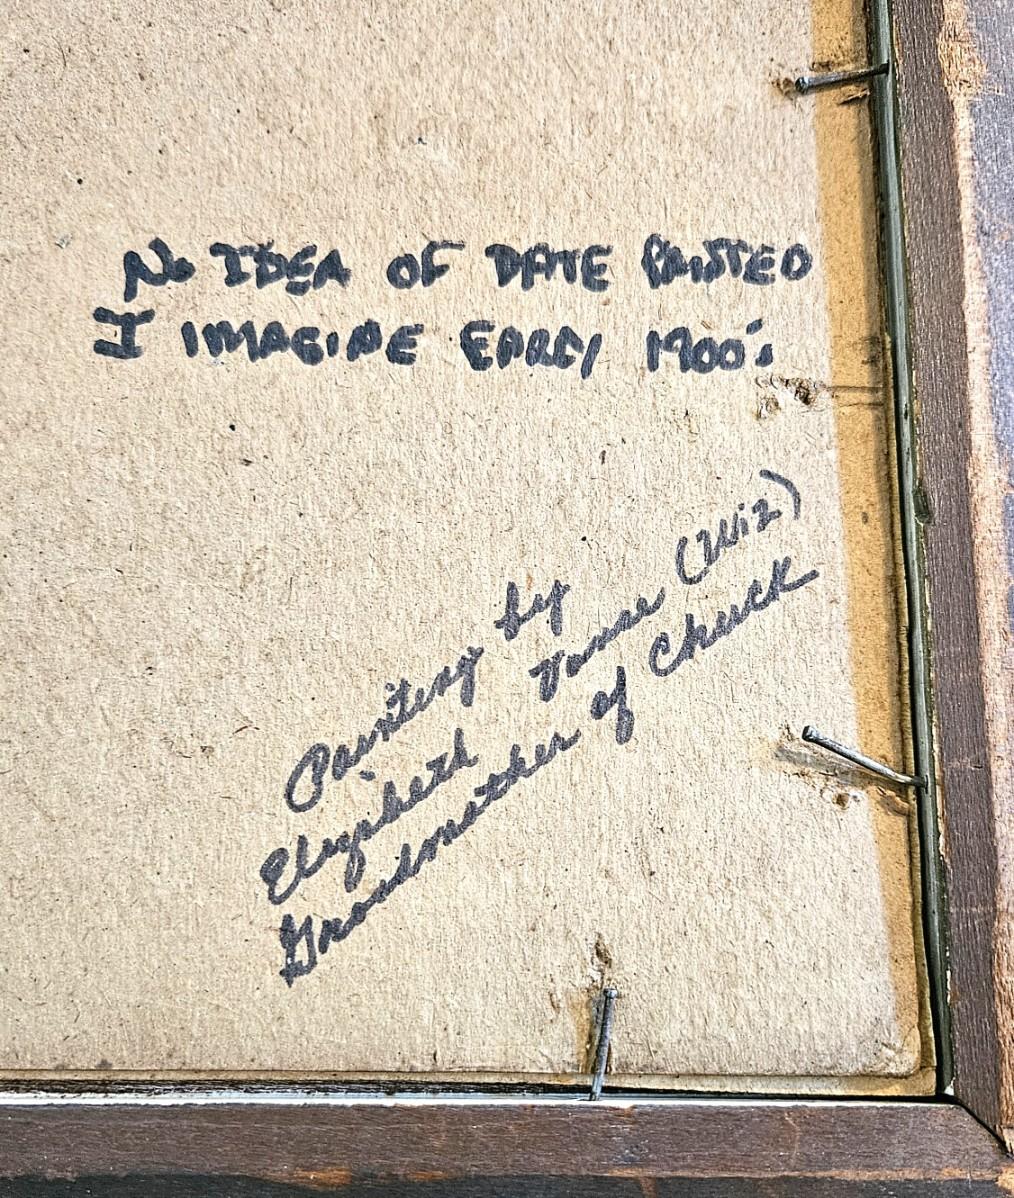 No IDEA OF DATE PAINTED
I IMAGINE EARLY 1900's
Painting by
Elizabeth Vanse (Wiz)
Grandmother of Chuck